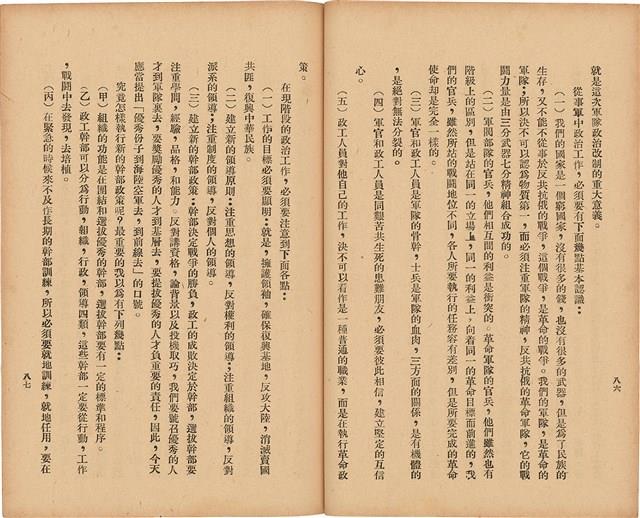 就是這次軍隊政治改制的重大意義。
從事軍中政治工作，必須要有下面幾點基本認識：
（一）我們的國家是一個窮國家，沒有很多的錢，也沒有很多的武器，但是爲了民族的
生存，又不能不從事於反共抗俄的戰爭，這個戰爭，是革命的戰爭。我們的軍隊，是革命的
軍隊；所以決不可以認爲物質第一，而必須注重軍隊的精神，反共抗俄的革命軍隊，它的戰
鬪力量是由三分武器七分精神組合成功的。
（二）軍閥部隊的官兵，他們相互間的利益是衝突的。革命軍隊的官兵，他們雖然也有
階級上的區別，但是站在同一的立場上，同一的利益上，向着同一的革命目標而前進的，我
們的官兵，雖然所站的戰鬪地位不同，各人所要執行的任務容有差別，但是所要完成的革命
使命却是完全一樣的。
（三）軍官和政工人員是軍隊的骨幹，士兵是軍隊的血肉，三方面的關係，是有機體的
，是絕對無法分裂的。
（四）軍官和政工人員是同艱苦共生死的患難朋友，必須要彼此相信，建立堅定的互信
心。
（五）政工人員對他自己的工作，決不可以看作是一種普通的職業，而是在執行革命政
八六
策。
在現階段的政治工作，必須要注意到下面各點：
（一）工作的目標必須要顯明：就是，擁護領袖，確保復興基地，反攻大陸，消滅賣國
共匪，復興中華民族。
（二）建立新的領導原則：注重思想的領導，反對權利的領導；注重組織的領導，反對
派系的領導；注重制度的領導，反對個人的領導。
（三）建立新的幹部政策：幹部決定戰爭的勝負，政工的成敗決定於幹部，選拔幹部要
注重學問，經驗，品格，和能力。反對講資格，論背景以及投機取巧，我們要號召優秀的人
才到軍隊裏來，要獎勵優秀的人才到基層去，要提拔優秀的人才負重要的責任，因此，今天
應當提出「優秀份子到海陸空軍去，到前線去」的口號。
究竟怎樣執行新的幹部政策呢？最重要的我以爲有下列幾點：
（甲）組織的功能是在團結和選拔優秀的幹部，選拔幹部要有一定的標準和程序。
（乙）政工幹部可以分爲行動，組織，行政，領導四類，這些幹部一定要從行動，工作
，戰鬪中去發現，去培植。
（丙）在緊急的時候來不及作長期的幹部訓練，所以必須要就地訓練，就地任用，要在
八七